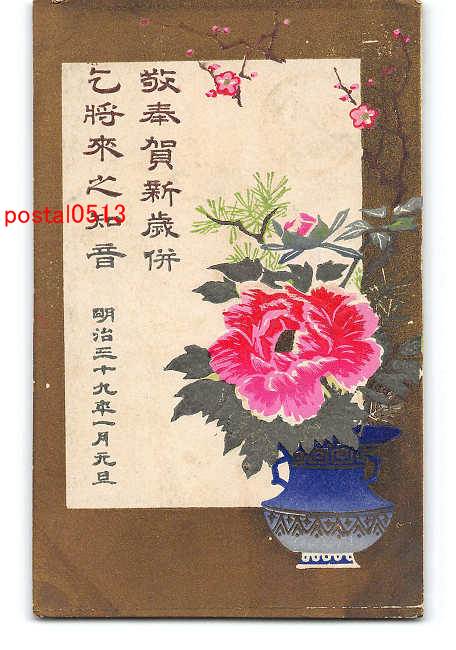 敬奉賀新歳併
乞將來之知音
明治三十九年一月元旦
postal0513